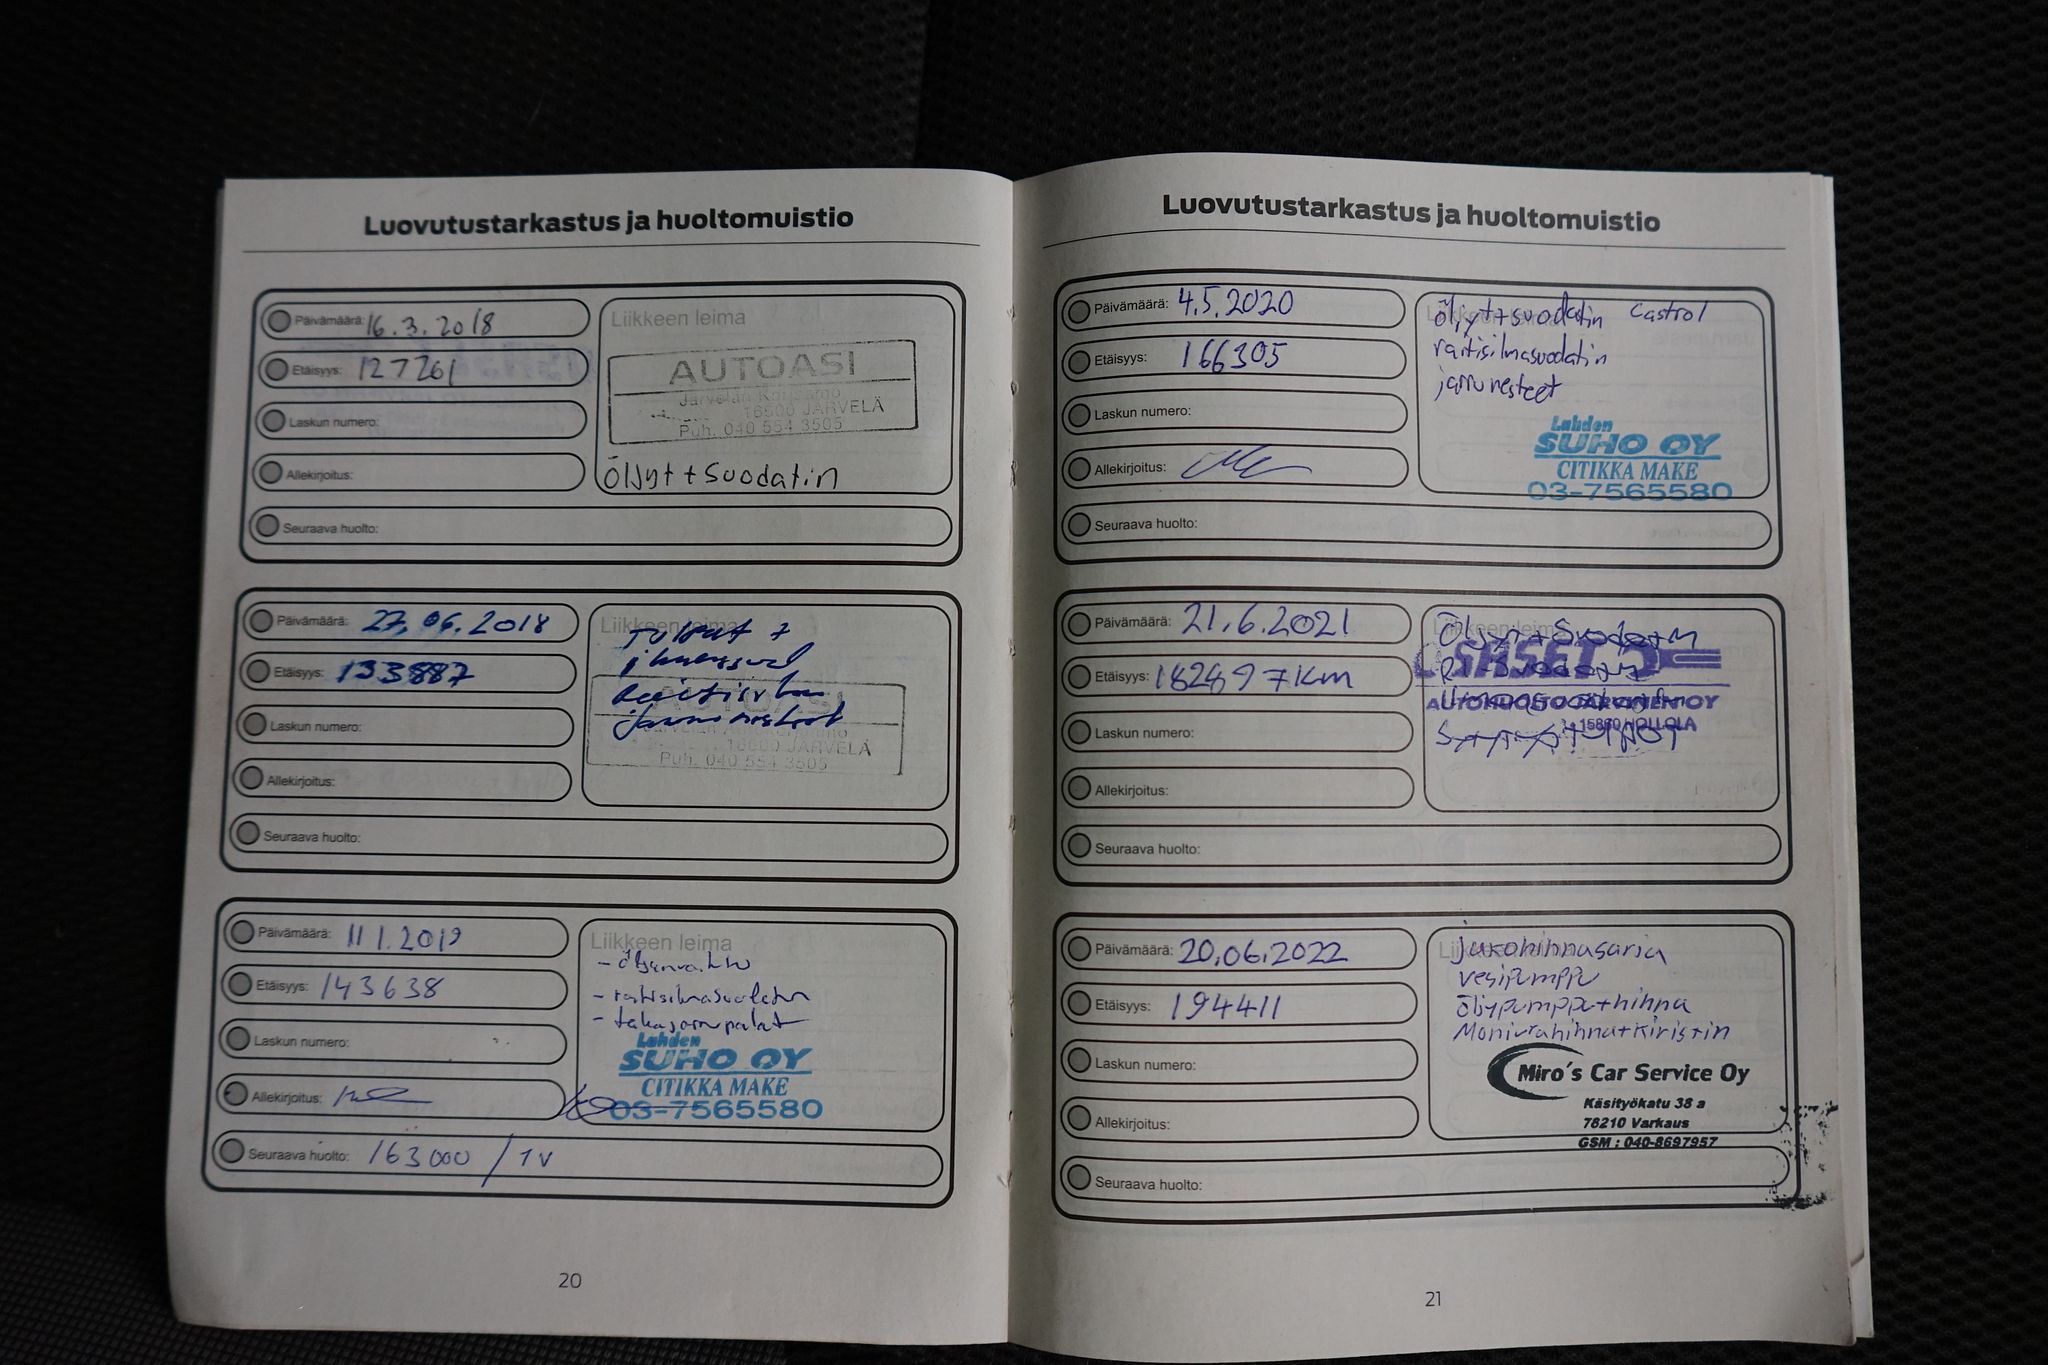 Luovutustarkastus ja huoltomuistio
Päivämäärä: 16.3.2018
Etäisyys: 127261
Laskun numero:
Allekirjoitus:
Liikkeen leima
AUTOASI
16500 JÄRVELÄ
Puh. 040 554 3505
Öljyt + suodatin
Seuraava huolto:
Päivämäärä: 27.06.2018
Etäisyys: 133887
Laskun numero:
Allekirjoitus:
Liikkeen leima
AUTOASI
JÄRVELÄ
Puh. 040 554 3505
Seuraava huolto:
Päivämäärä: 11 1.2019
Etäisyys: 143638
Laskun numero:
Allekirjoitus:
Liikkeen leima
- raitisilmasuodatin
- takajarrupalat
Lahden
SUHO OY
CITIKKA MAKE
03-7565580
Seuraava huolto: 163000 / 1v
20
Luovutustarkastus ja huoltomuistio
Päivämäärä: 4.5.2020
Etäisyys: 166305
Laskun numero:
Allekirjoitus:
öljyt+suodatin Castrol
raitisilmasuodatin
jarrunesteet
Lahden
SUHO OY
CITIKKA MAKE
03-7565580
Seuraava huolto:
Päivämäärä: 21.6.2021
Etäisyys: 182497km
Laskun numero:
Allekirjoitus:
Öljyt + Suodatin
AUTOHUOLTO JÄRVINEN OY
HOLLOLA
Seuraava huolto:
Päivämäärä: 20.06.2022
Etäisyys: 194411
Laskun numero:
Allekirjoitus:
jakohihnasarja
vesipumppu
öljypumppu+hihna
Moniurahihna+kiristin
Miro´s Car Service Oy
Käsityökatu 38 a
78210 Varkaus
GSM : 040-8697957
Seuraava huolto:
21